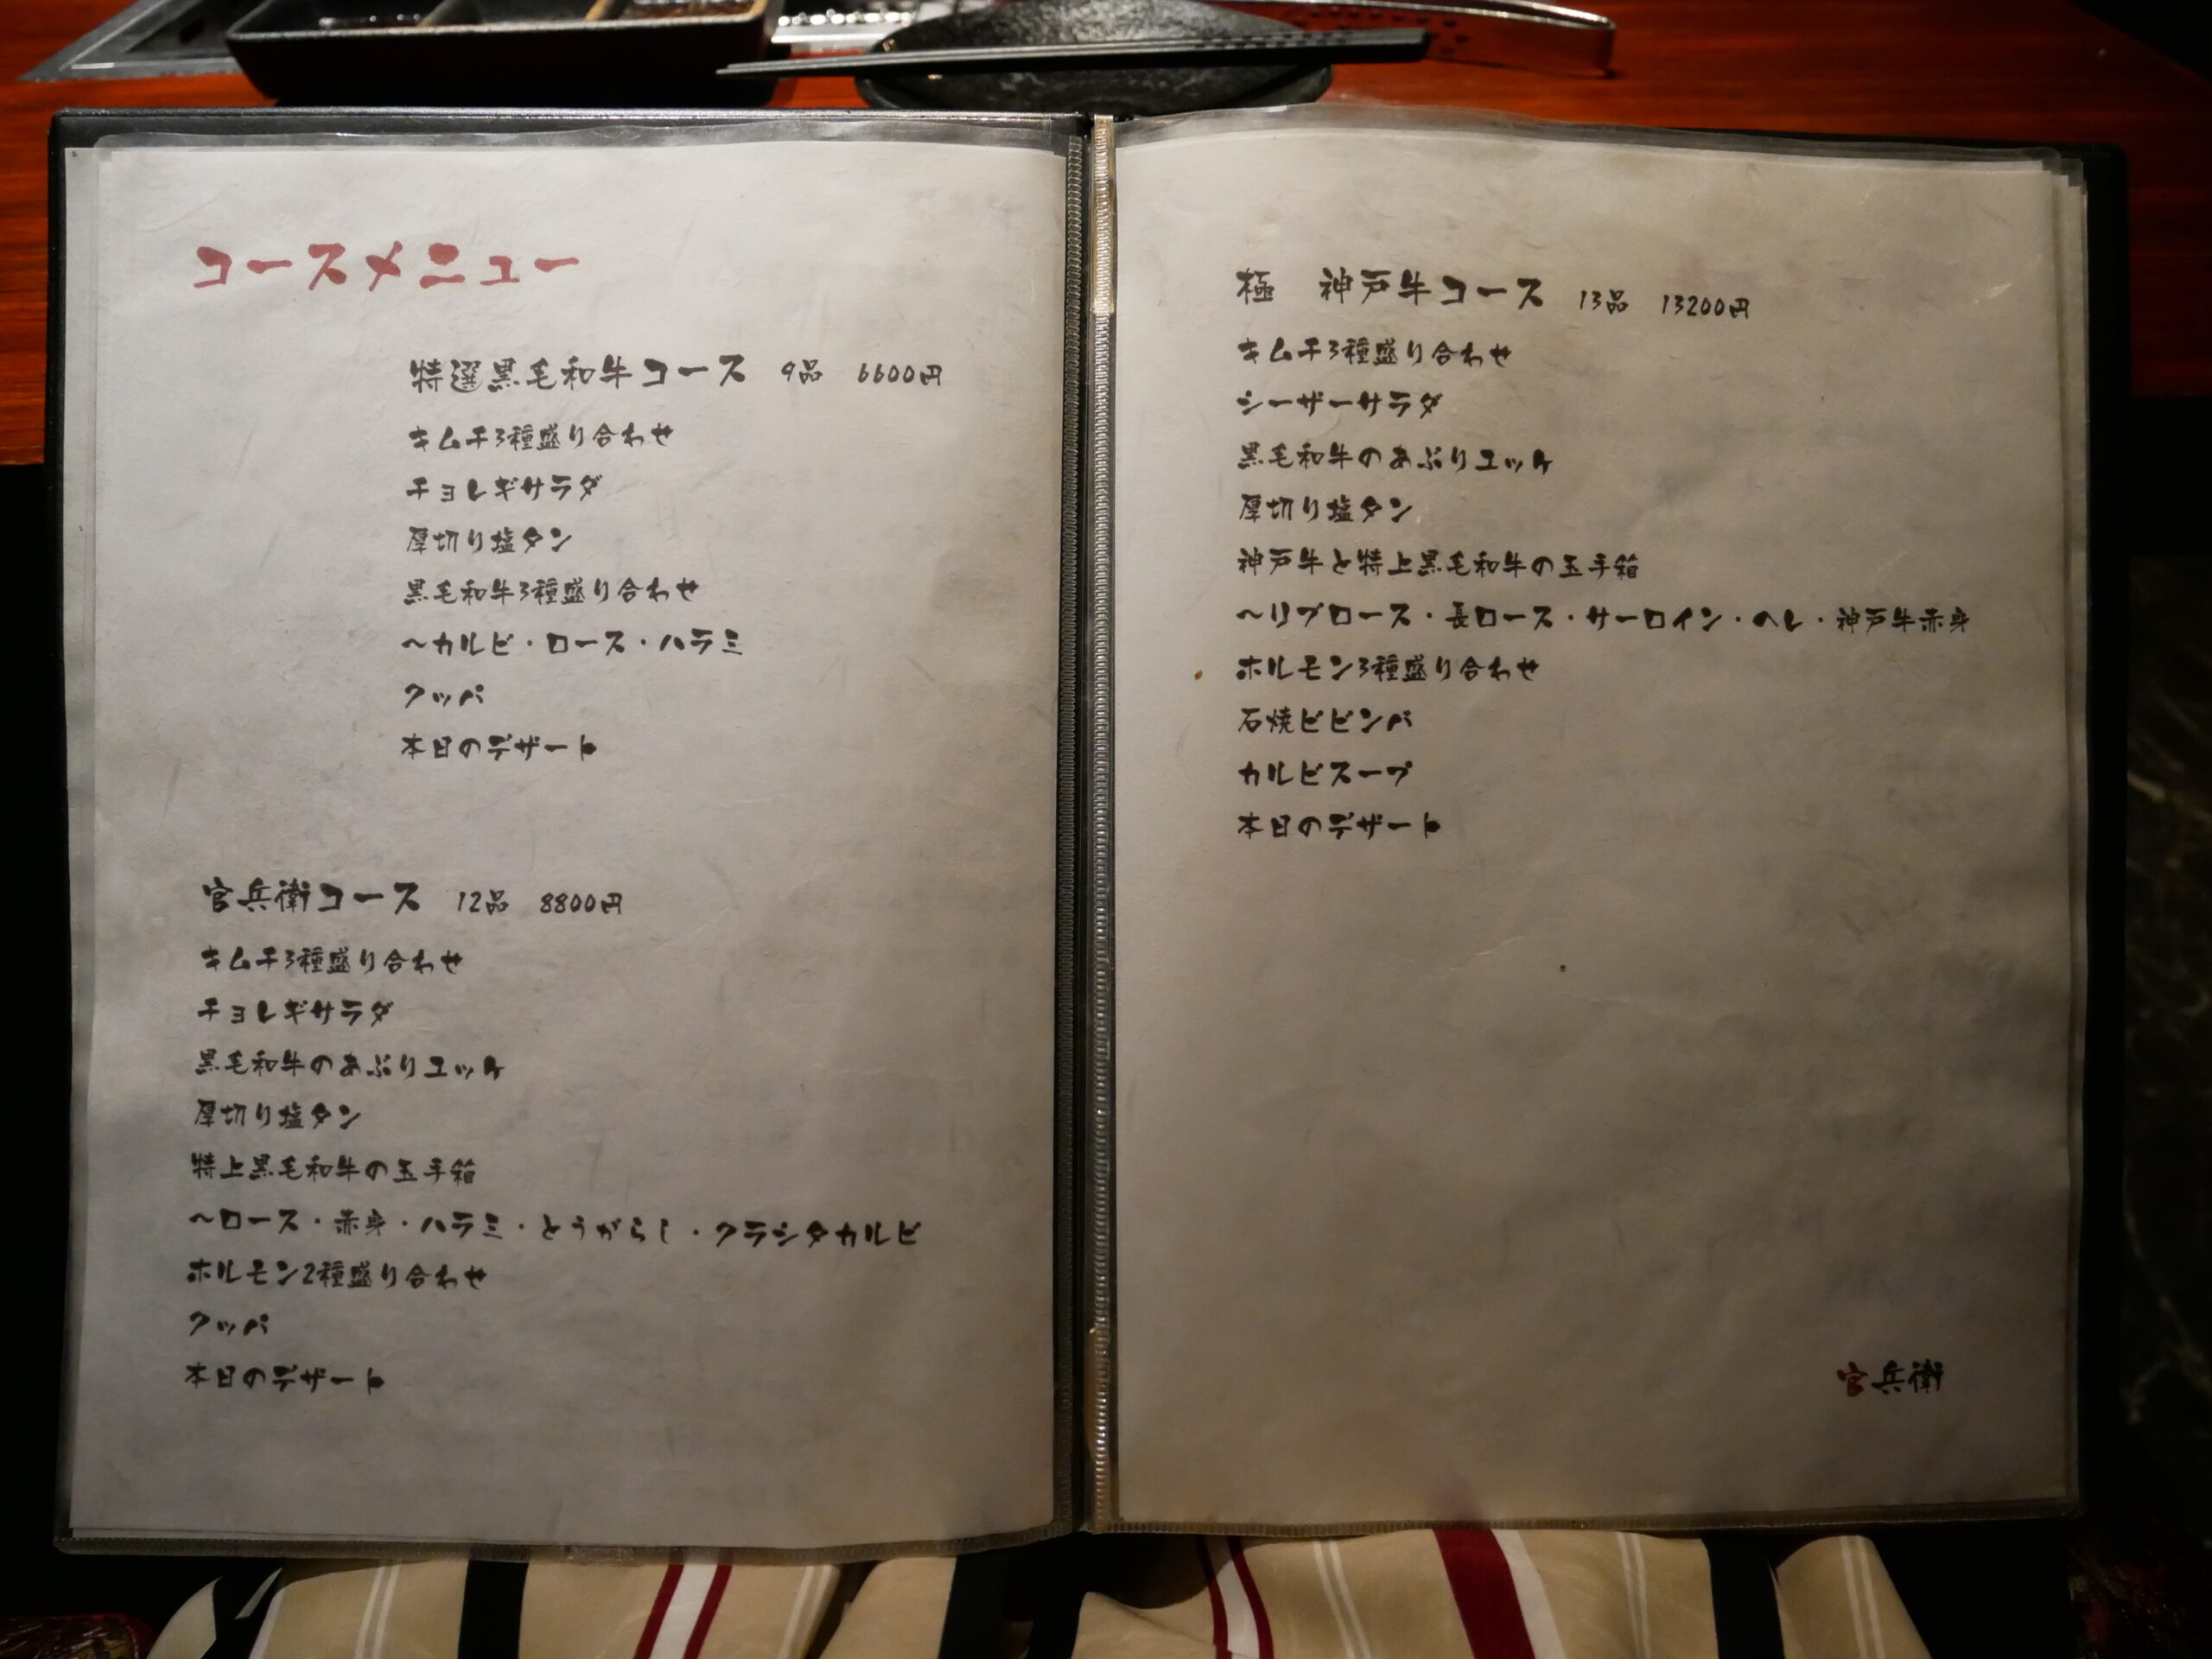 コースメニュー
特選黒毛和牛コース 9品 6600円
キムチ3種盛り合わせ
チョレギサラダ
厚切り塩タン
黒毛和牛3種盛り合わせ
～カルビ・ロース・ハラミ
クッパ
本日のデザート
官兵衛コース 12品 8800円
キムチ3種盛り合わせ
チョレギサラダ
黒毛和牛のあぶりユッケ
厚切り塩タン
特上黒毛和牛の玉手箱
～ロース・赤身・ハラミ・とうがらし・クラシタカルビ
ホルモン2種盛り合わせ
クッパ
本日のデザート
極 神戸牛コース 13品 13200円
キムチ3種盛り合わせ
シーザーサラダ
黒毛和牛のあぶりユッケ
厚切り塩タン
神戸牛と特上黒毛和牛の玉手箱
～リブロース・長ロース・サーロイン・ヘレ・神戸牛赤身
ホルモン3種盛り合わせ
石焼ビビンバ
カルビスープ
本日のデザート
官兵衛